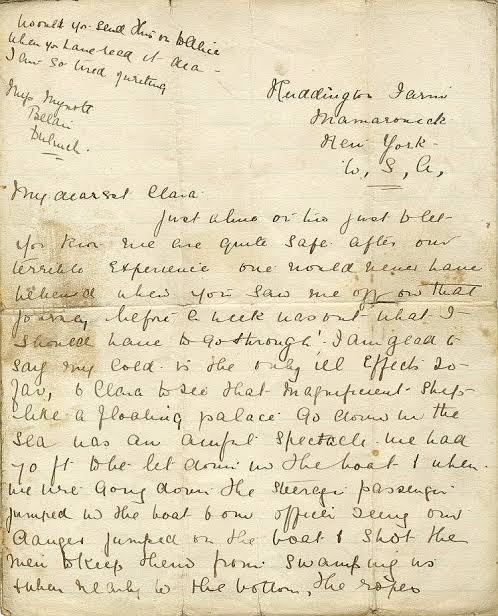 Would you send this on to Alice
when you have read it dea -
I am so tired writing
Miss Mynott
Belair
Dulwich.
Huddington Farm
Mamaroneck
New York -
U, S, A,
My dearest Clara
Just a line or two just to let
you know we are quite safe after our
terrible Experience one would never have
believed when you saw me off on that
journey before a week was out what I
should have to go through! I am glad to
say my cold is the only ill Effects so
far, O Clara to see that magnificent ship
like a floating palace Go down in the
sea was an awful spectacle we had
70 ft to be let down in the boat & when
we were Going down the steerage passenger
jumped in the boat & our officer seing our
danger jumped in the boat & shot the
men to keep them from swamping us
& when nearly to the bottom, the ropes